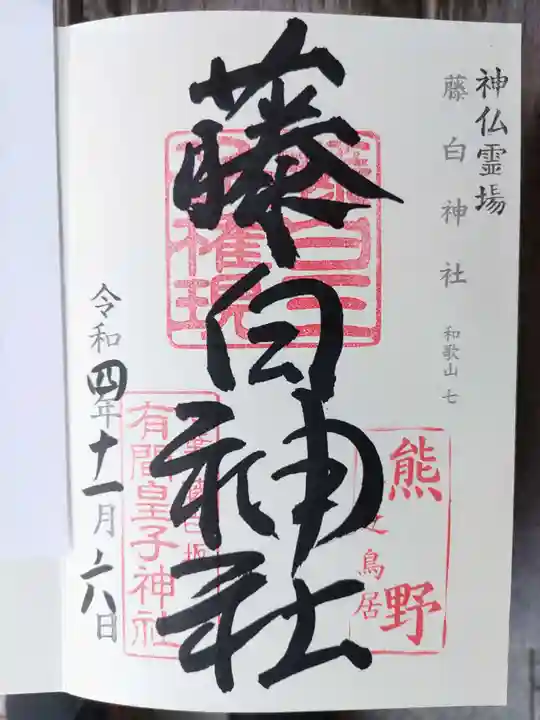 神仏霊場
藤白神社
和歌山 七
藤白神社
熊野
鳥居
有間皇子神社
令和四年十一月六日